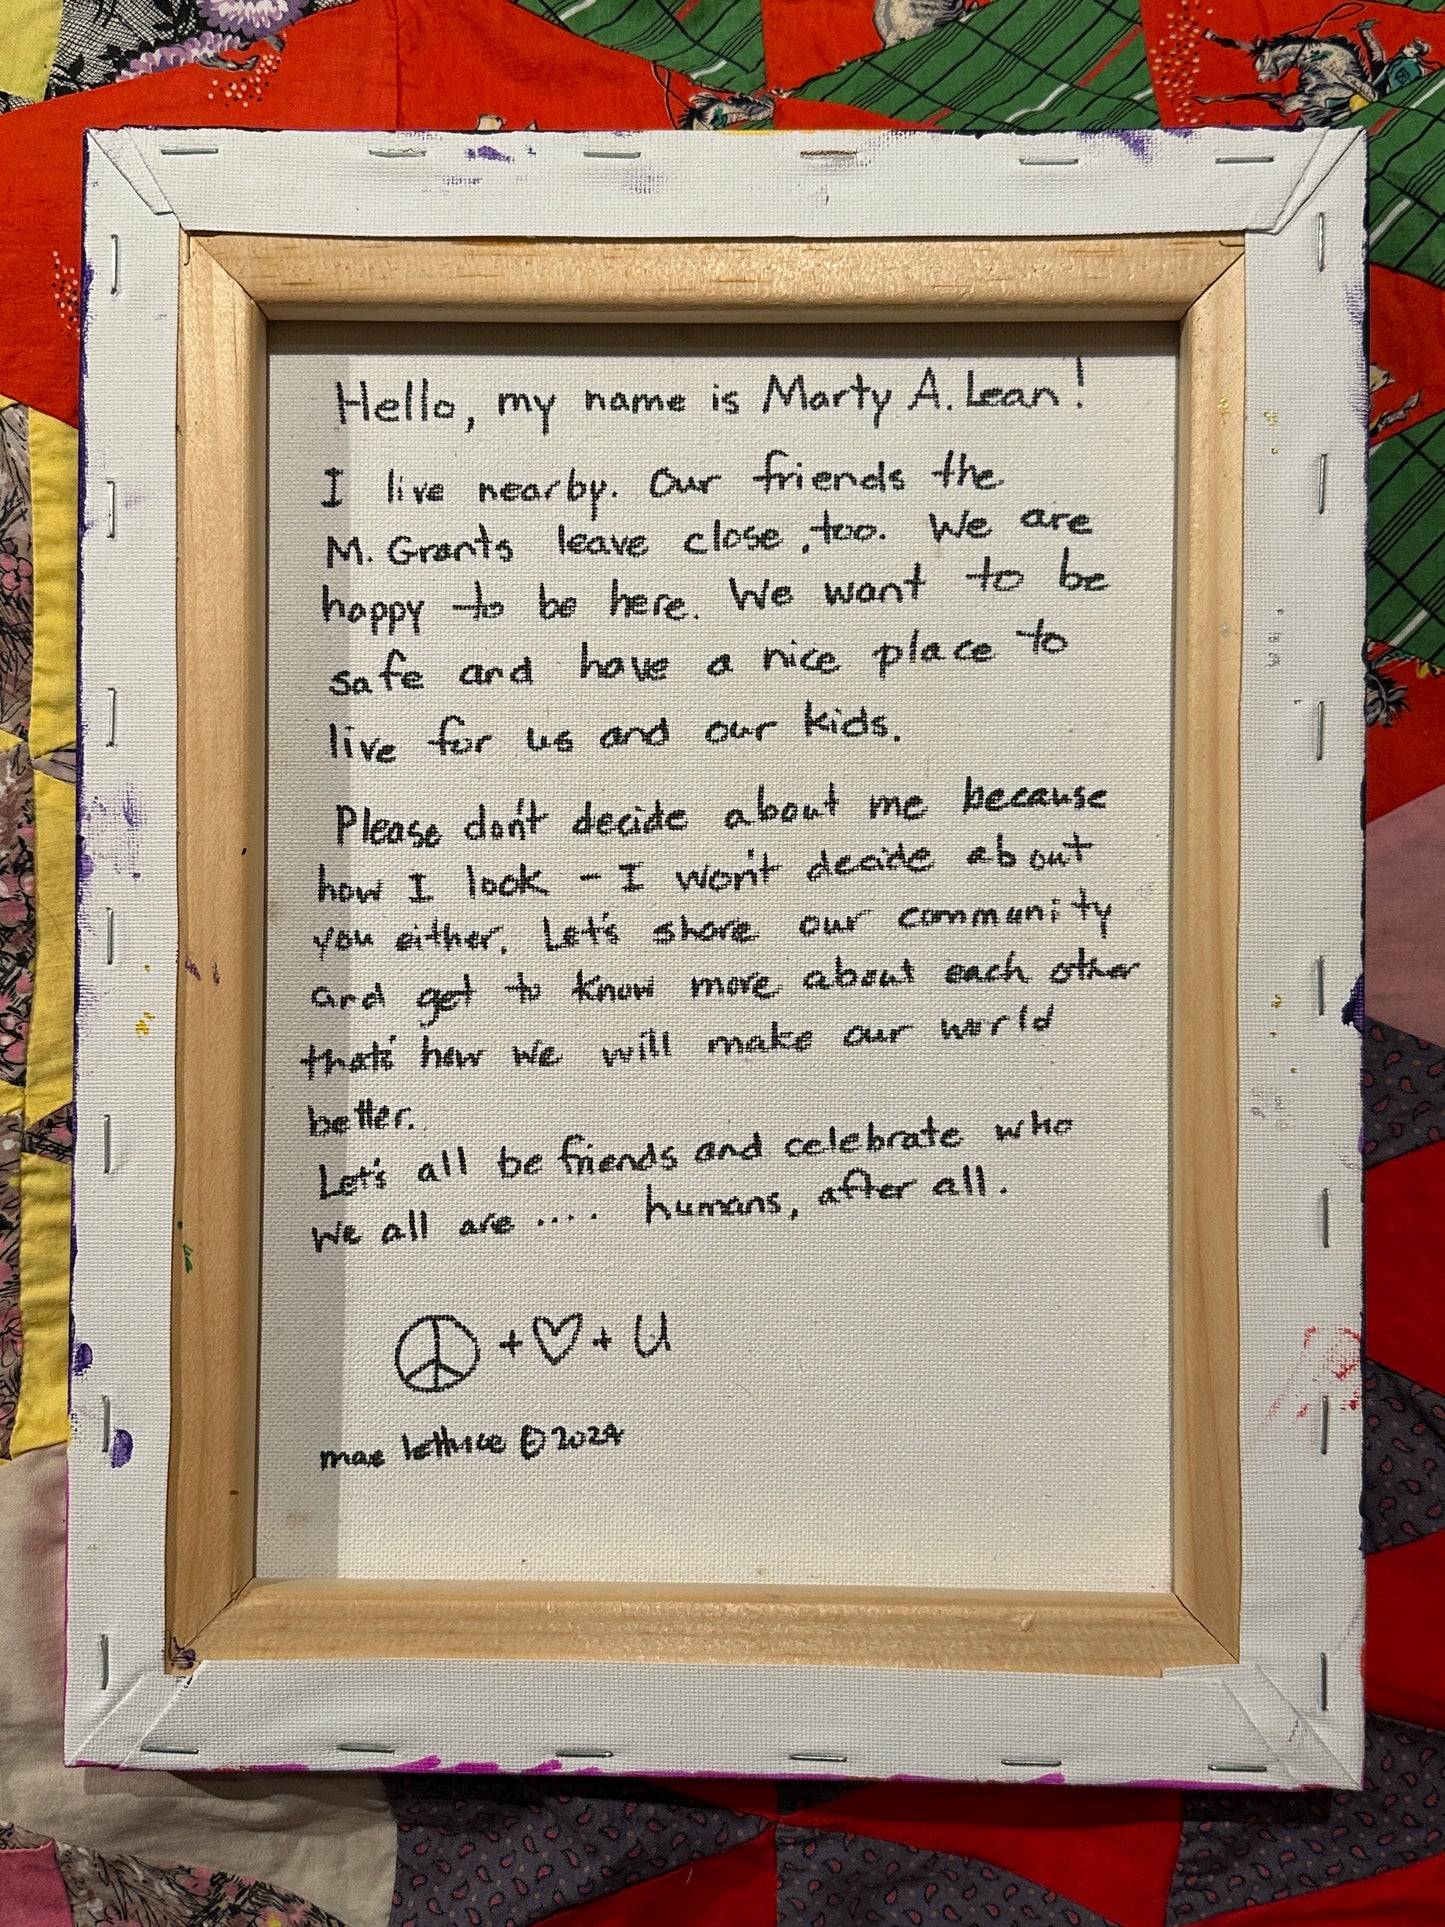 Hello, my name is Marty A. Lean!
I live nearby. Our friends the
M. Grants leave close, too. We are
happy to be here. We want to be
safe and have a nice place to
live for us and our kids.
Please don't decide about me because
how I look - I won't decide about
you either. Let's share our community
and get to know more about each other
that's how we will make our world
better.
Let's all be friends and celebrate who
we all are .... humans, after all.
☮ + ♡ + U
mae lettuce © 2024